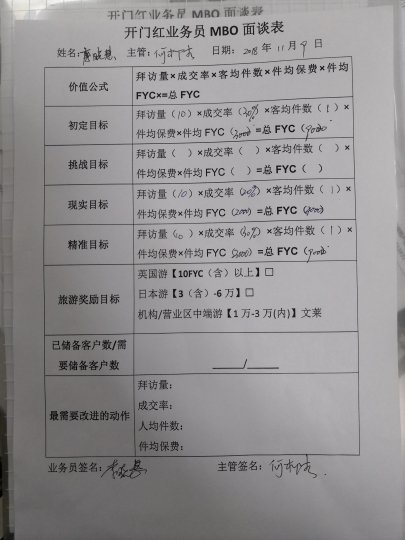 开门红业务员 MBO 面谈表
开门红业务员 MBO 面谈表
姓名: 主管: 日期: 2018 年 11 月 9 日
价值公式
拜访量×成交率×客均件数×件均保费×件均
FYC×=总 FYC
初定目标
拜访量（10）×成交率（30%）×客均件数（1）×
件均保费×件均 FYC（3000）=总 FYC（9000）
挑战目标
拜访量（ ）×成交率（ ）×客均件数（ ）×
件均保费×件均 FYC（ ）=总 FYC（ ）
现实目标
拜访量（10）×成交率（20%）×客均件数（1）×
件均保费×件均 FYC（2000）=总 FYC（4000）
精准目标
拜访量（10）×成交率（30%）×客均件数（1）×
件均保费×件均 FYC（3000）=总 FYC（9000）
旅游奖励目标
英国游【10FYC（含）以上】□
日本游【3（含）-6 万】□
机构/营业区中端游【1 万-3 万(内)】文莱
已储备客户数/需
要储备客户数
____/____
最需要改进的动作
拜访量：
成交率：
人均件数：
件均保费：
业务员签名： 主管签名：